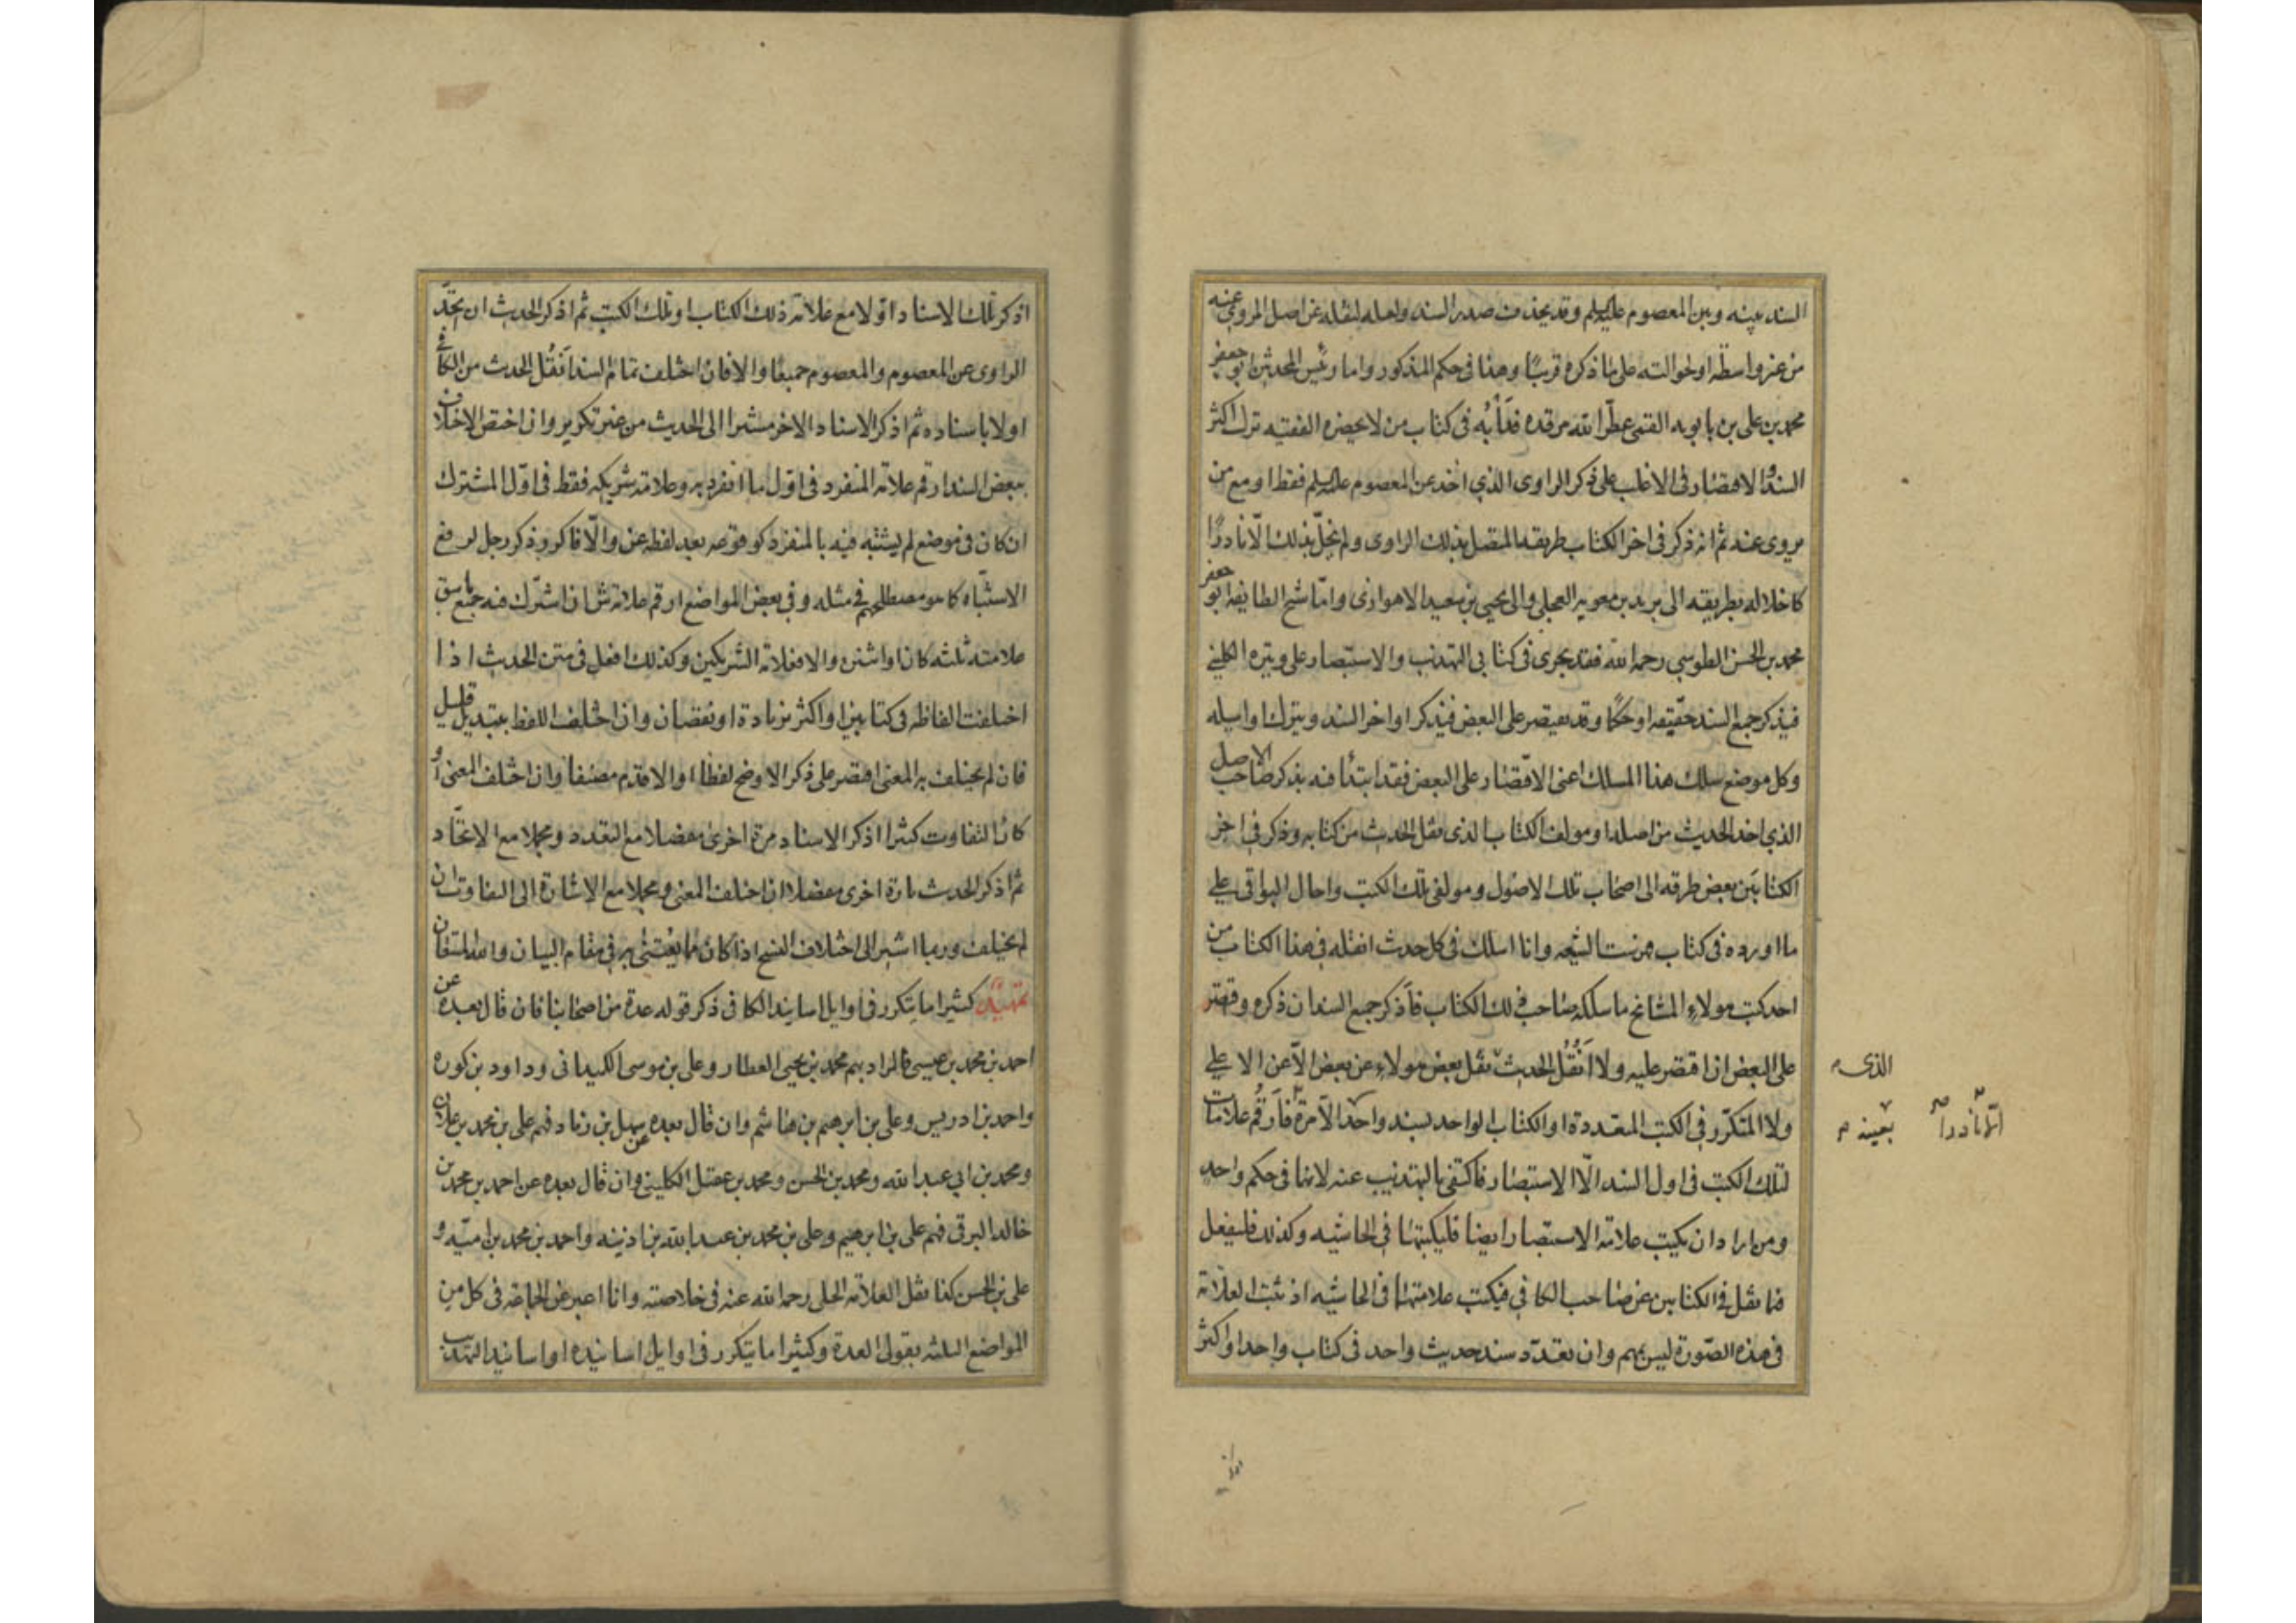 السند بينه وبين المعصوم عليه السلم وقد يحذف صدر السند ولعله لنقله عن اصل المروي عنه
من غير واسطة او لحوالته على ما ذكره قريبًا وهذا في حكم المذكور واما رئيس المحدثين ابو جعفر
محمد بن على بن بابويه القمى عطّر الله مرقده فدَأبُه فى كتاب من لا يحضره الفقيه ترك اكثر
السند والاقتصار فى الاغلب على ذكر الراوى الذي اخذ عن المعصوم عليه السلم فقط او مع من
يروى عنه ثم انه ذكر فى اخر الكتاب طريقه المتصل بذلك الراوى ولم يخلّ بذلك الّا نادرًا
كاخلاله بطريقه الى بريد بن معوية العجلى والى يحيى بن سعيد الاهوازى وامّا شيخ الطايفة ابو جعفر
محمد بن الحسن الطوسي رحمه الله فقد يجرى فى كتابي التهذيب والاستبصار على وتيرة الكلينى
فيذكر جميع السند حقيقة او حكمًا وقد يقتصر على البعض فيذكر اواخر السند ويترك اوايله
وكل موضع سلك هذا المسلك اعنى الاقتصار على البعض فقد ابتدأ فيه بذكر صاحب الاصل
الذي اخذ الحديث من اصله او مولف الكتاب الذى نقل الحديث من كتابه وذكر في اخر
الكتابَين بعض طرقه الى اصحاب تلك الاصول ومولفى تلك الكتب واحال البواقى على
ما اورده فى كتاب فهرست الشيعه وانا اسلك فى كل حديث انقله فى هذا الكتاب من
احد كتب هولاءِ المشائخ ما سلكه صاحب ذلك الكتاب فاَذكر جميع السند ان ذكره واقتصر
على البعض ان اقتصر عليه ولا اَنْقُل الحديث نقل بعض هولاءِ عن بعض الّا عن الاعلى
ولا المتكرّر فى الكتب المتعددة او الكتاب الواحد بسند واحد الّا مرّة فاَرقُم علامات
لتلك الكتب فى اول السند الّا الاستبصار فاكتفى بالتهذيب عنه لانهما فى حكم واحد
ومن اراد ان يكتب علامة الاستبصار ايضا فليكتبها فى الحاشيه وكذلك فليفعل
فيما نقل فى الكتابين عن صاحب الكافي فيكتب علامتهما فى الحاشيه اذ ثبت العلامة
فى هذه الصّورة ليس بمهم وان تعدّد سند حديث واحد فى كتاب واحد او اكثر
الذى
بعينه
الّا نادراً
اذكر تلك الاسناد اوّلا مع علامة ذلك الكتاب او تلك الكتب ثم اذكر الحديث ان يتحدّ
الراوى عن المعصوم والمعصوم جميعًا والا فان اختلف تمام السند اَنقُل الحديث من الكافى
اولا باسناده ثم اذكر الاسناد الاخر مشيرا الى الحديث من غير تكرير وان اختص الاختلاف
ببعض السند ارقم علامة المنفرد فى اوّل ما انفرد به وعلامة شريكه فقط فى اوّل المشترك
ان كان فى موضع لم يشتبه فيه بالمنفرد كوقوعه بعد لفظة عن والّا فاكرر ذكر رجل لرفع
الاشتباه كما هو مصطلحهم فى مثله وفى بعض المواضع ارقم علامة ش ان اشترك فيه جميع ما سبق
علامته ثلثه كانا او اشنين والا فعلامة الشريكين وكذلك افعل فى متن الحديث اذا
اختلفت الفاظه فى كتابين او اكثر بزيادة او نقصان وان اختلف اللفظ بتبديل قليل
فان لم يختلف به المعنى اقتصر على ذكر الاوضح لفظا او الاقدم مصنفا وان اختلف المعنى او
كان التفاوت كثيرا اذكر الاسناد مرة اخرى مفصلا مع التعدد ومجملا مع الاتحّاد
ثم اذكر الحديث تارة اخرى مفصلا ان اختلف المعنى ومجملا مع الاشارة الى التفاوت ان
لم يختلف وربما اشير الى اختلاف النسخ اذا كان مما يُعْتنى به فى مقام البيان والله المستعان
تمهيد كثيرا ما يتكرر فى اوايل اسانيد الكافى ذكر قوله عدة من اصحابنا فان قال بعده عن
احمد بن محمد بن عيسى فالمراد بهم محمد بن يحيى العطار وعلى بن موسى الكميدانى وداود بن كوره
واحمد بن ادريس وعلى بن ابرهيم بن هاشم وان قال بعده عن سهل بن زياد فهم على بن محمد بن علان
ومحمد بن ابي عبد الله ومحمد بن الحسن ومحمد بن عقيل الكلينى وان قال بعده عن احمد بن محمد بن
خالد البرقى فهم على بن ابرهيم وعلى بن محمد بن عبد الله بن اذينه واحمد بن محمد بن اميّه و
على بن الحسن كذا نقل العلامة الحلى رحمه الله عنه فى خلاصته وانا اعبر عن الجماعة فى كل من
المواضع الثلثه بقولى العدة وكثيرا ما يتكرر فى اوايل اسانيده او اسانيد التهذيب